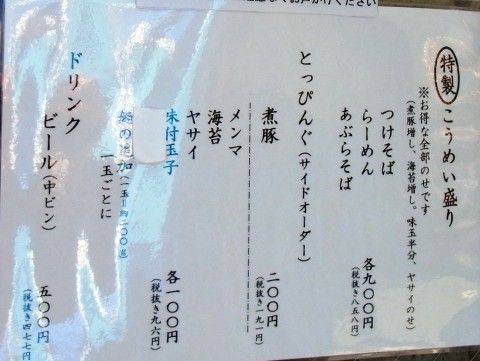 お声がけください
特製 こうめい盛り
※お得な全部のせです
（煮豚増し、海苔増し。味玉半分、ヤサイのせ）
つけそば
らーめん
あぶらそば
各九〇〇円
（税抜き八五八円）
とっぴんぐ（サイドオーダー）
煮豚
二〇〇円
（税抜き一九一円）
メンマ
海苔
ヤサイ
味付玉子
各一〇〇円
（税抜き九六円）
麺の追加（一玉＝約二〇〇g）
一玉ごとに
ドリンク
ビール（中ビン）
五〇〇円
（税抜き四七七円）